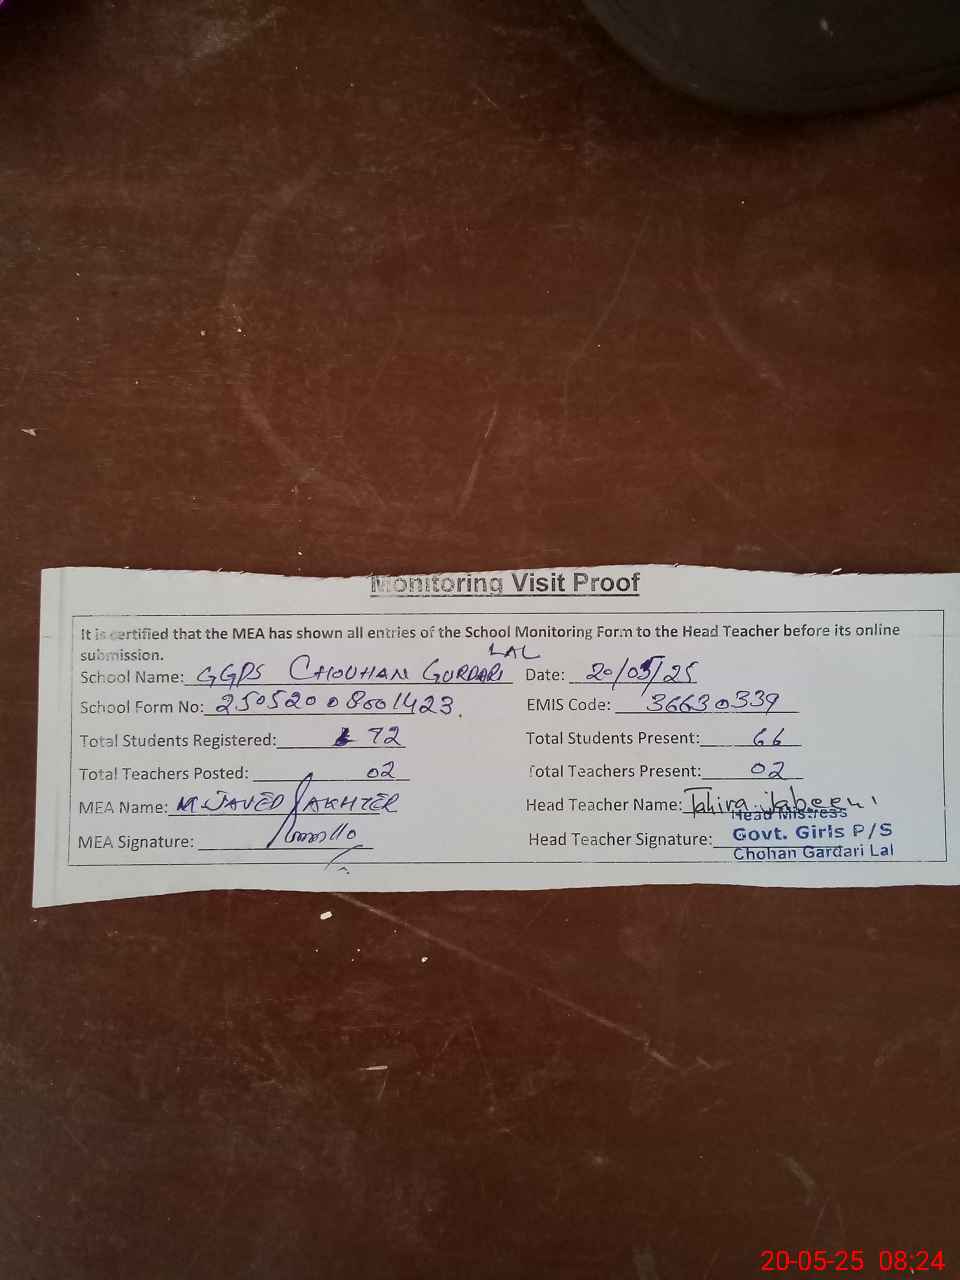 Monitoring Visit Proof
It is certified that the MEA has shown all entries of the School Monitoring Form to the Head Teacher before its online
submission.
School Name: GGPS CHOUHAN GURDARI LAL Date: 20/05/25
School Form No: 250520008001423. EMIS Code: 36630339
Total Students Registered: 72 Total Students Present: 66
Total Teachers Posted: 02 Total Teachers Present: 02
MEA Name: M JAVED AKHTER Head Teacher Name: Tahira Jabeen
MEA Signature: Head Teacher Signature:
Head Mistress
Govt. Girls P/S
Chohan Gardari Lal
20-05-25 08:24